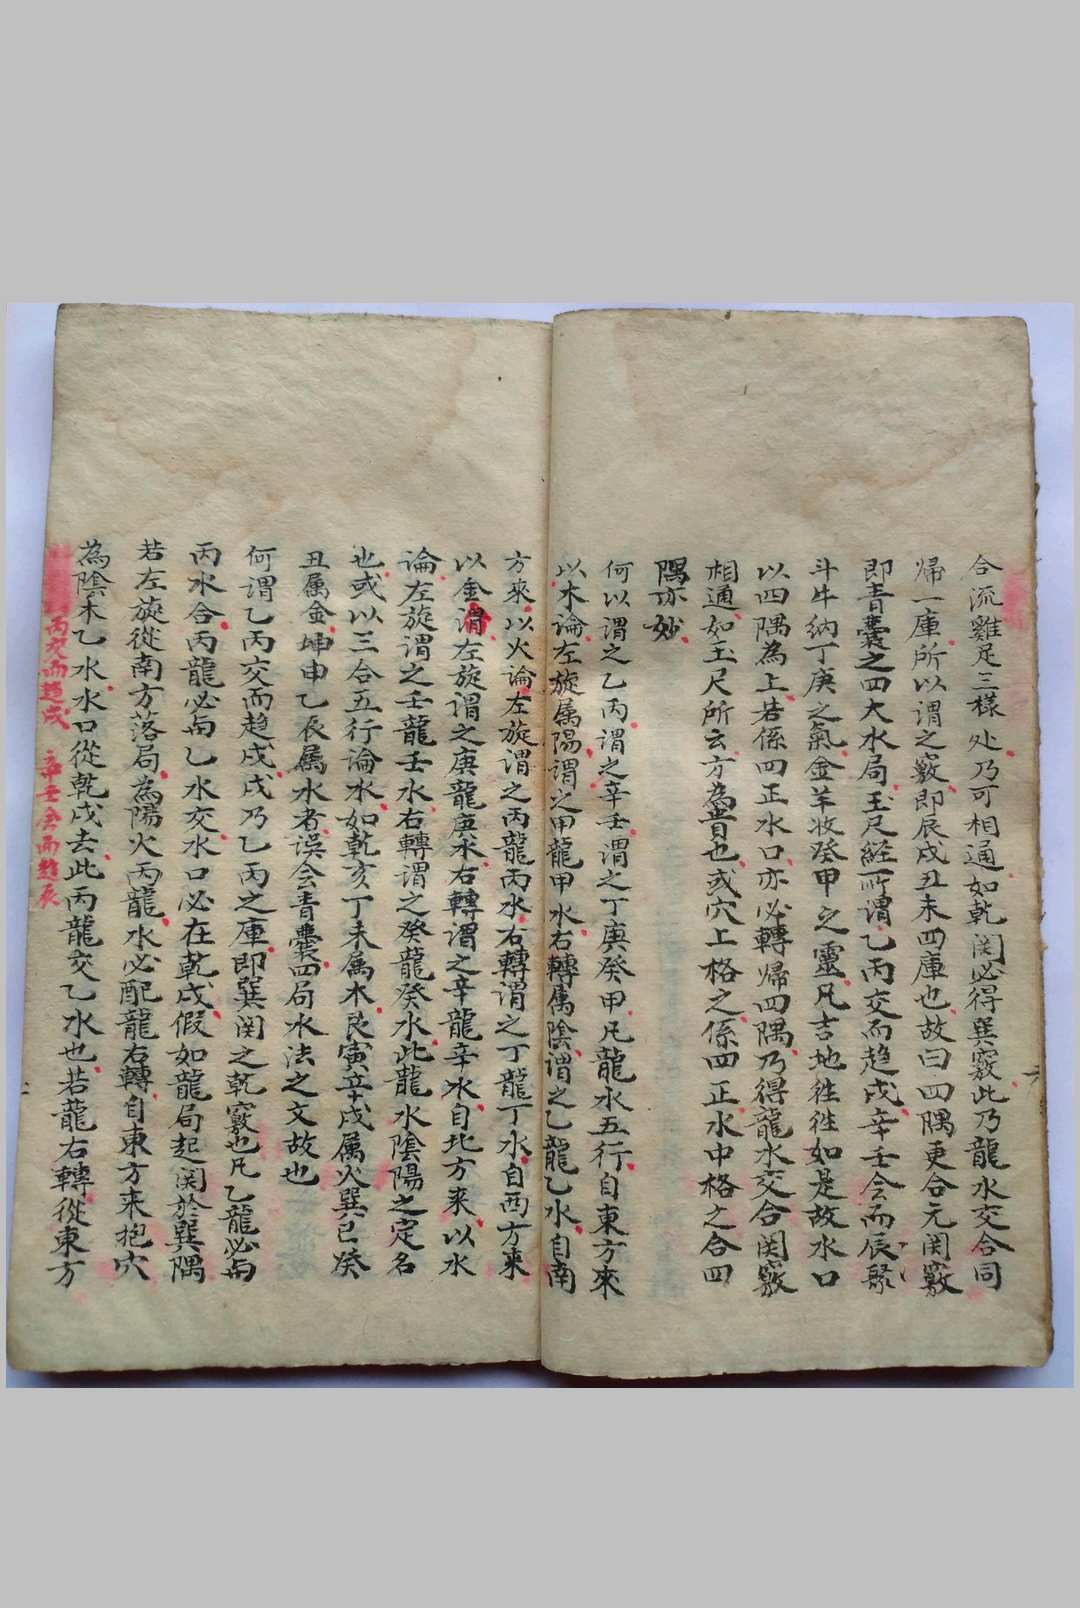 合流雞足三樣处乃可相通如乾関必得巽竅此乃龍水交合同
帰一庫所以謂之竅即辰戌丑未四庫也故曰四隅更合元関竅
即青囊之四大水局玉尺經所謂乙丙交而趋戌辛壬会而辰聚
斗牛納丁庚之氣金羊收癸甲之靈凡吉地徃徃如是故水口
以四隅為上若係四正水口亦必轉帰四隅乃得龍水交合関竅
相通如玉尺所云方為貴也或穴上格之係四正水中格之合四
隅亦妙
何以謂之乙丙謂之辛壬謂之丁庚癸甲凡龍水五行自東方來
以木論左旋属陽謂之甲龍甲水右轉属陰謂之乙龍乙水自南
方來以火論左旋謂之丙龍丙水右轉謂之丁龍丁水自西方来
以金謂左旋謂之庚龍庚水右轉謂之辛龍辛水自北方来以水
論左旋謂之壬龍壬水右轉謂之癸龍癸水此龍水陰陽之定名
也或以三合五行論水如乾亥丁未属木艮寅辛戌属火巽巳癸
丑属金坤申乙辰属水者误会青囊四局水法之文故也
何謂乙丙交而趋戌戌乃乙丙之庫即巽関之乾竅也凡乙龍必与
丙水合丙龍必与乙水交水口必在乾戌假如龍局起関於巽隅
若左旋從南方落局為陽火丙龍水必配龍右轉自東方来抱穴
為陰木乙水水口從乾戌去此丙龍交乙水也若龍右轉從東方
丙交而趋戌 辛壬会而趋辰